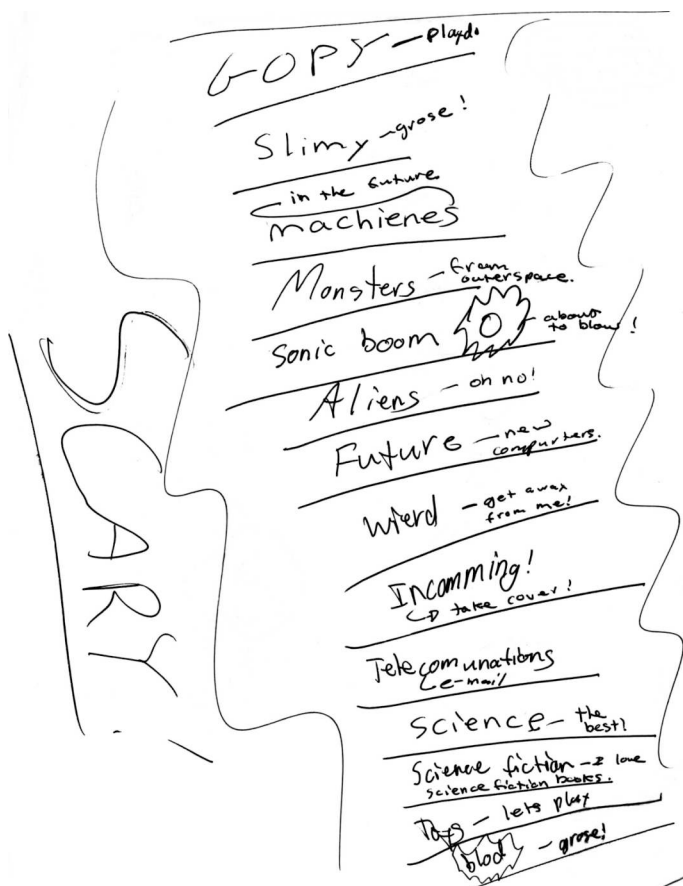 GOPY - playdo
Slimy - grose!
in the future
machienes
Monsters - from
outerspace.
Sonic boom - about
to blow!
Aliens - oh no!
Future - new
compurters.
wierd - get away
from me!
Incomming!
take cover!
Telecomunations
e-mail
science - the
best!
Science fiction - I love
science fiction books.
Toys - lets play
blod - grose!
SCARY!